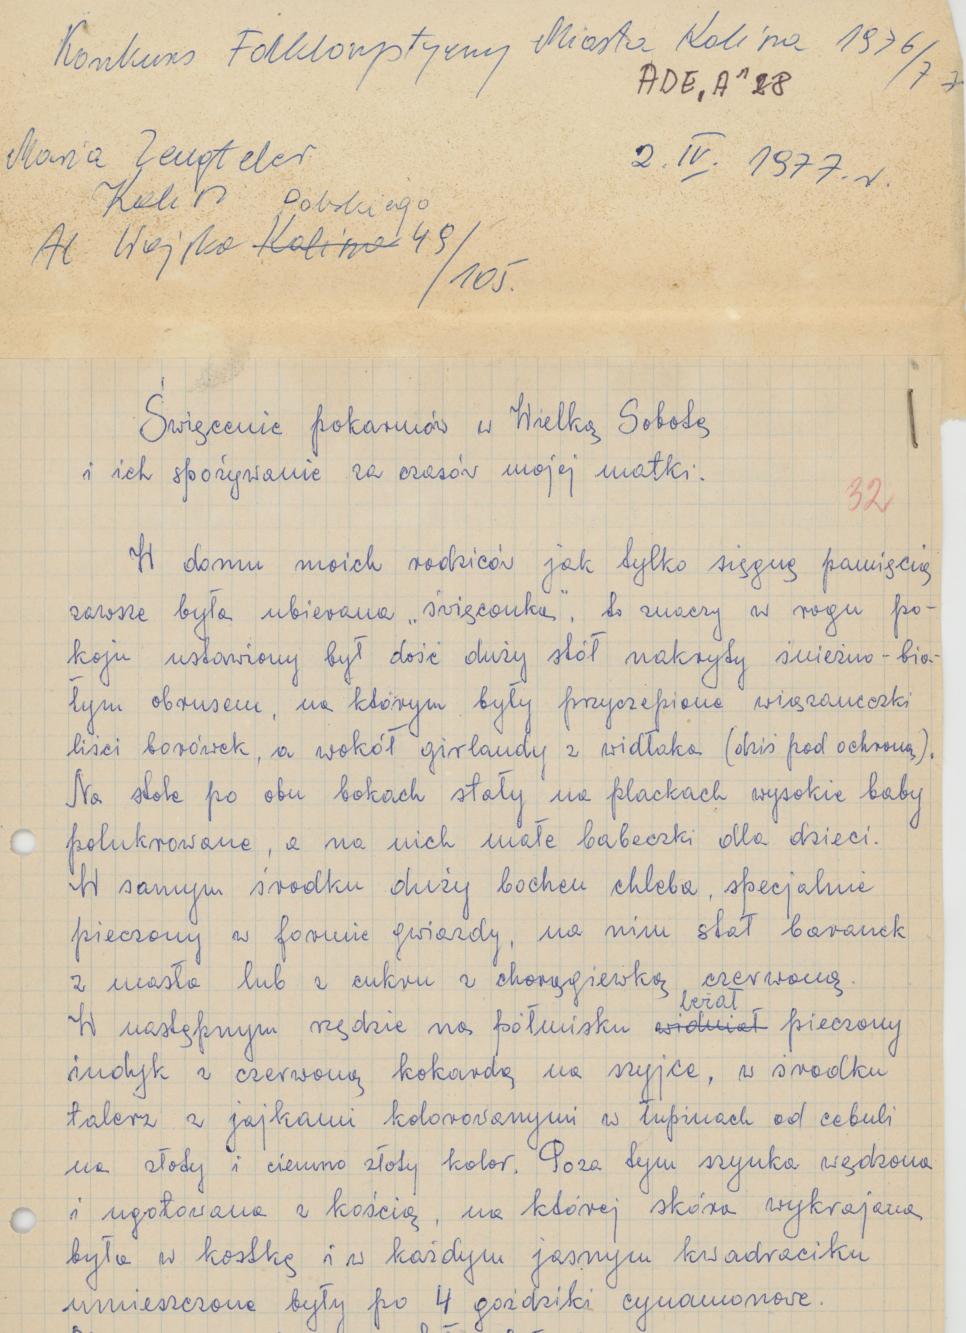 Konkurs Folklorystyczny Miasta Kalisza 1976/77
ADE, A" 28
Maria
2. IV. 1977. r.
Kalisz
Polskiego
Al Wojska Kalisza 49/105.
Święcenie pokarmów w Wielką Sobotę
i ich spożywanie za czasów mojej matki.
32
W domu moich rodziców jak tylko sięgnę pamięcią
zawsze była ubierana „święconka”, to znaczy w rogu po-
koju ustawiony był dość duży stół nakryty śnieżno-bia-
łym obrusem, na którym były przyczepione wiązaneczki
liści borówek, a wokół girlandy z widłaka (dziś pod ochroną).
Na stole po obu bokach stały na plackach wysokie baby
polukrowane, a na nich małe babeczki dla dzieci.
W samym środku duży bochen chleba, specjalnie
pieczony w formie gwiazdy, na nim stał baranek
z masła lub z cukru z chorągiewką czerwoną.
leżał
W następnym rzędzie na półmisku widniał pieczony
indyk z czerwoną kokardą na szyjce, w środku
talerz z jajkami kolorowanymi w łupinach od cebuli
na złoty i ciemno złoty kolor. Poza tym szynka wędzona
i ugotowana z kością, na której skóra wykrajana
była w kostkę i w każdym jasnym kwadraciku
umieszczone były po 4 goździki cynamonowe.